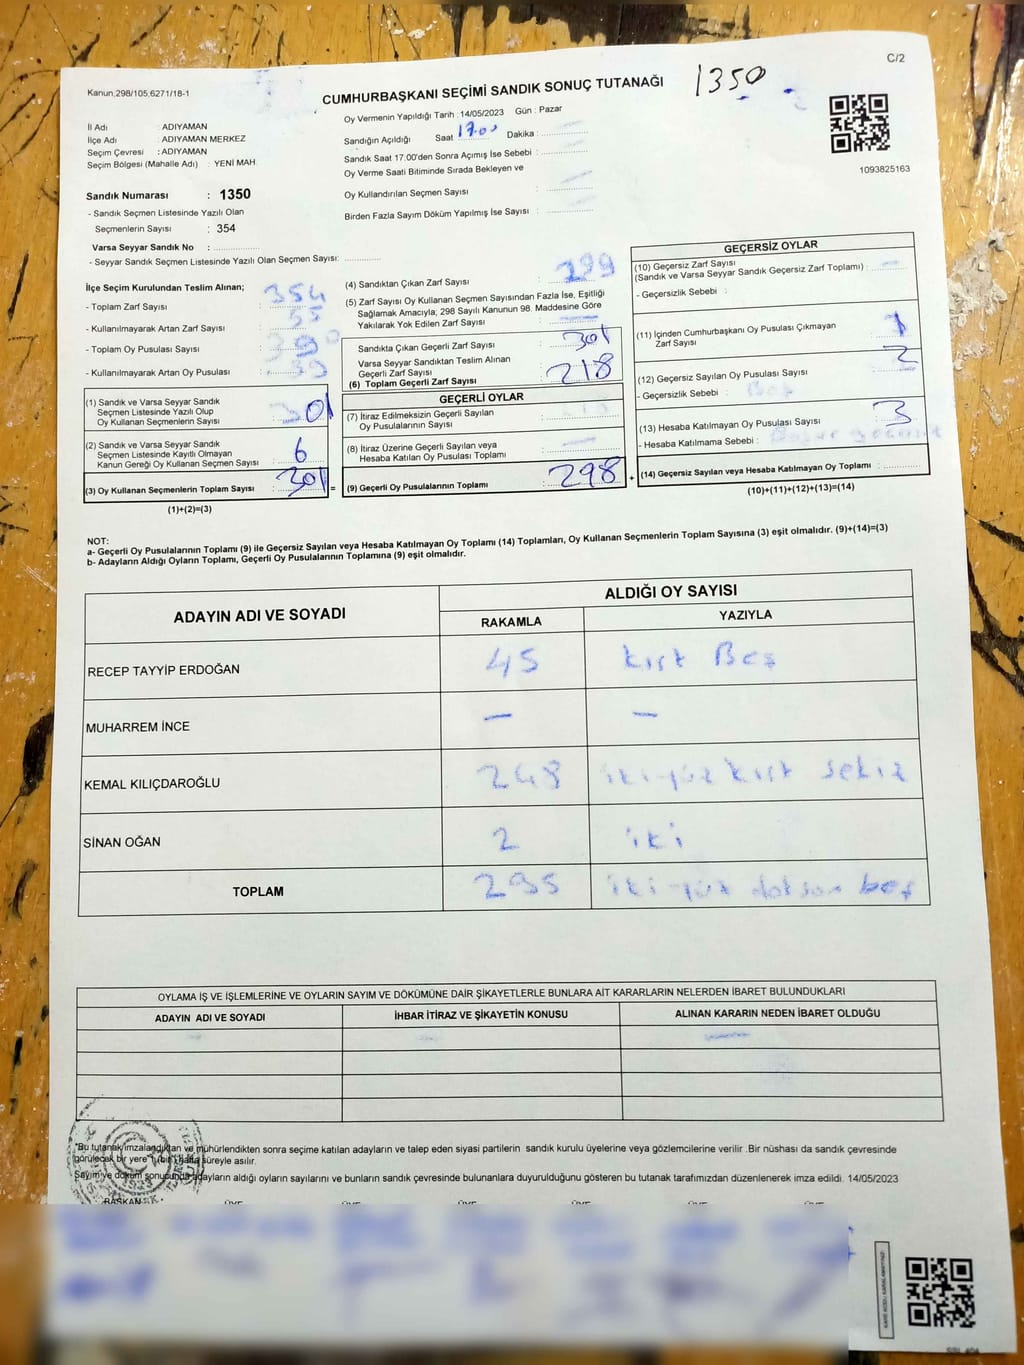 C/2
Kanun,298/105,6271/18-1
CUMHURBAŞKANI SEÇİMİ SANDIK SONUÇ TUTANAĞI
1350
İl Adı : ADIYAMAN
İlçe Adı : ADIYAMAN MERKEZ
Seçim Çevresi : ADIYAMAN
Seçim Bölgesi (Mahalle Adı) : YENİ MAH.
Sandık Numarası : 1350
- Sandık Seçmen Listesinde Yazılı Olan
Seçmenlerin Sayısı : 354
Varsa Seyyar Sandık No :
- Seyyar Sandık Seçmen Listesinde Yazılı Olan Seçmen Sayısı:
Oy Vermenin Yapıldığı Tarih :14/05/2023 Gün : Pazar
Sandığın Açıldığı Saat 17.00 Dakika :
Sandık Saat 17.00'den Sonra Açımış İse Sebebi :
Oy Verme Saati Bitiminde Sırada Bekleyen ve
Oy Kullandırılan Seçmen Sayısı :
Birden Fazla Sayım Döküm Yapılmış İse Sayısı :
1093825163
İlçe Seçim Kurulundan Teslim Alınan;
- Toplam Zarf Sayısı : 354
- Kullanılmayarak Artan Zarf Sayısı :
- Toplam Oy Pusulası Sayısı :
- Kullanılmayarak Artan Oy Pusulası :
(1) Sandık ve Varsa Seyyar Sandık
Seçmen Listesinde Yazılı Olup
Oy Kullanan Seçmenlerin Sayısı : 301
(2) Sandık ve Varsa Seyyar Sandık
Seçmen Listesinde Kayıtlı Olmayan
Kanun Gereği Oy Kullanan Seçmen Sayısı : 6
(3) Oy Kullanan Seçmenlerin Toplam Sayısı : 301 =
(1)+(2)=(3)
(4) Sandıktan Çıkan Zarf Sayısı : 299
(5) Zarf Sayısı Oy Kullanan Seçmen Sayısından Fazla İse, Eşitliği
Sağlamak Amacıyla; 298 Sayılı Kanunun 98. Maddesine Göre
Yakılarak Yok Edilen Zarf Sayısı :
Sandıkta Çıkan Geçerli Zarf Sayısı : 301
Varsa Seyyar Sandıktan Teslim Alınan
Geçerli Zarf Sayısı :
(6) Toplam Geçerli Zarf Sayısı 218
GEÇERLİ OYLAR
(7) İtiraz Edilmeksizin Geçerli Sayılan
Oy Pusulalarının Sayısı :
(8) İtiraz Üzerine Geçerli Sayılan veya
Hesaba Katılan Oy Pusulası Toplamı :
(9) Geçerli Oy Pusulalarının Toplamı : 298 +
GEÇERSİZ OYLAR
(10) Geçersiz Zarf Sayısı
(Sandık ve Varsa Seyyar Sandık Geçersiz Zarf Toplamı) : –
- Geçersizlik Sebebi :
(11) İçinden Cumhurbaşkanı Oy Pusulası Çıkmayan
Zarf Sayısı : 1
(12) Geçersiz Sayılan Oy Pusulası Sayısı : 2
- Geçersizlik Sebebi :
(13) Hesaba Katılmayan Oy Pusulası Sayısı : 3
- Hesaba Katılmama Sebebi :
(14) Geçersiz Sayılan veya Hesaba Katılmayan Oy Toplamı :
(10)+(11)+(12)+(13)=(14)
NOT:
a- Geçerli Oy Pusulalarının Toplamı (9) ile Geçersiz Sayılan veya Hesaba Katılmayan Oy Toplamı (14) Toplamları, Oy Kullanan Seçmenlerin Toplam Sayısına (3) eşit olmalıdır. (9)+(14)=(3)
b- Adayların Aldığı Oyların Toplamı, Geçerli Oy Pusulalarının Toplamına (9) eşit olmalıdır.
ADAYIN ADI VE SOYADI
ALDIĞI OY SAYISI
RAKAMLA YAZIYLA
RECEP TAYYİP ERDOĞAN 45 kırk Beş
MUHARREM İNCE – –
KEMAL KILIÇDAROĞLU 248 iki-yüz kırk sekiz
SİNAN OĞAN 2 iki
TOPLAM 295 iki-yüz doksan beş
OYLAMA İŞ VE İŞLEMLERİNE VE OYLARIN SAYIM VE DÖKÜMÜNE DAİR ŞİKAYETLERLE BUNLARA AİT KARARLARIN NELERDEN İBARET BULUNDUKLARI
ADAYIN ADI VE SOYADI İHBAR İTİRAZ VE ŞİKAYETİN KONUSU ALINAN KARARIN NEDEN İBARET OLDUĞU
– – –
"Bu tutanak imzalandıktan ve mühürlendikten sonra seçime katılan adayların ve talep eden siyasi partilerin sandık kurulu üyelerine veya gözlemcilerine verilir. Bir nüshası da sandık çevresinde
görülecek bir yere 1 (bir) hafta süreyle asılır.
Sayım ve döküm sonucunda adayların aldığı oyların sayılarını ve bunların sandık çevresinde bulunanlara duyurulduğunu gösteren bu tutanak tarafımızdan düzenlenerek imza edildi. 14/05/2023
BAŞKAN ÜYE ÜYE ÜYE ÜYE ÜYE ÜYE